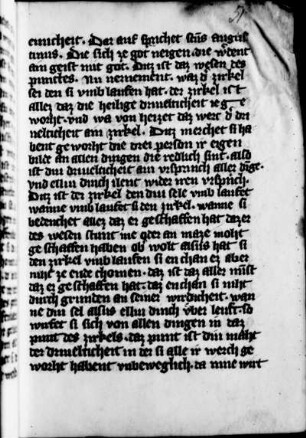 ewicheit. Dar auf sprichet sant augus
tinus. Die sich ze got neigen. die werdent
am geist mit got. Daz ist daz wesen des
punctes. Nu nement war der zirkel
sei den si vmb lauffen hat. der zirkel ist
allez daz die heilige driueltikeit ie ge
worht. vnd wa von heizet daz werch der dri
ueltikeit am zirkel. Daz merchet si ha
bent geworht die drei person ir eigen
bilde an allen dingen die redlich sint. also
ist diu driueltikeit am vrsprinch aller dinge.
vnd elliu dinch ilent wider in ren vrsprinch.
Daz ist der zirkel den diu sele vmb laufet
wanne vmb laufet si den zirkel. wanne si
bedenchet allez daz er geschaffen hat daz er
des selben stunt me oder an maze moht
geschaffen haben ob er wolt alsus hat si
den zirkel vmb laufen si en chan ez aber
niht ze ende chomen. daz ist daz aller minst
daz er geschaffen hat. daz en chan si niht
durch grunden an seiner wirdicheit. wan
ne diu sel alsus elliu dinch vber leuft. so
wirfet si sich von allen dingen in daz
punt des zirkels. daz punt ist diu maht
der driueltikeit in der si alle ir werch ge
worht habent vnbeweglich. da inne wirt